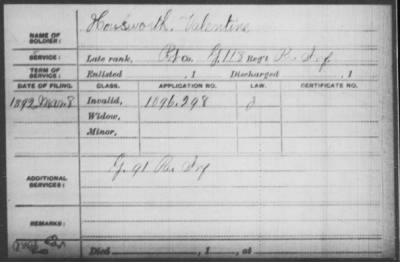 Housworth, Valentine
NAME OF SOLDIER:
SERVICE: Late rank, Pt Co. G, 118 Reg't Pa. Inf
TERM OF SERVICE: Enlisted , 1 Discharged , 1
DATE OF FILING. CLASS. APPLICATION NO. LAW. CERTIFICATE NO.
1892 Mar 8 Invalid, 1096,298
Widow,
Minor,
ADDITIONAL SERVICES: G. 91 Pa. Inf
REMARKS:
Died , 1 , at